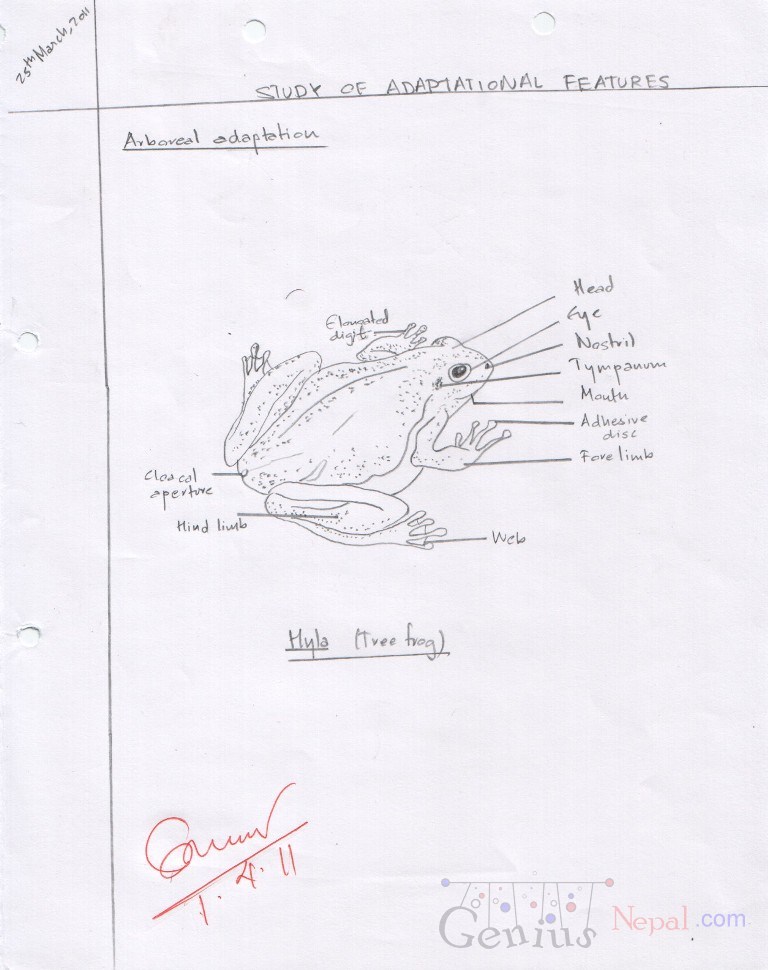 25th March, 2011
STUDY OF ADAPTATIONAL FEATURES
Arboreal adaptation
Head
Eye
Elongated
digit
Nostril
Tympanum
Mouth
Adhesive
disc
Fore limb
Cloacal
aperture
Hind limb
Web
Hyla (Tree frog)
1.4.11
Genius Nepal.com